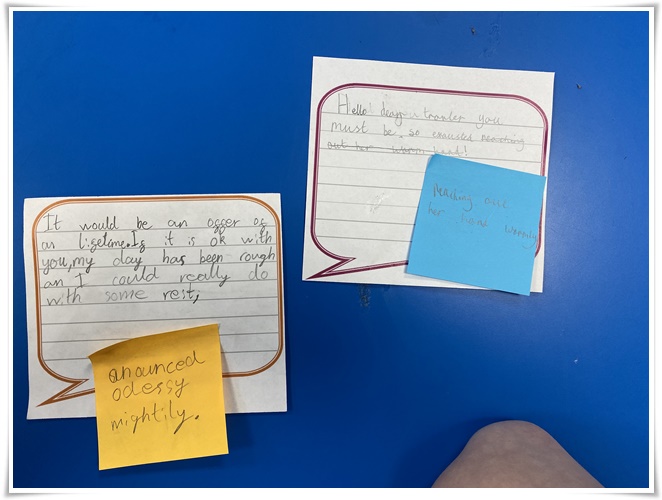 Hello! deary tranler you
must be so exausted reaching
out her worm hand!
Reaching out
her hand wormly
It would be an offer of
an lifetime. If it is ok with
you, my day has been rough
an I could really do
with some rest,
anounced
odessy
mightily.